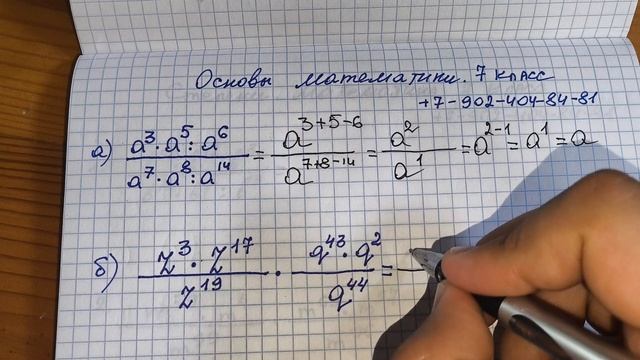 Основы математики. 7 класс
+7-902-404-84-81
а) a³·a⁵:a⁶ / a⁷·a⁸:a¹⁴ = a³⁺⁵⁻⁶ / a⁷⁺⁸⁻¹⁴ = a² / a¹ = a²⁻¹ = a¹ = a
б) z³·z¹⁷ / z¹⁹ · q⁴³·q² / q⁴⁴ =